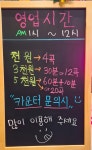 영업시간
AM 1시 ~ 12시
천원→4곡
3천원→30분~12곡
5천원→60분+10분
~20곡
"카운터 문의시"
많이 이용해 주세요